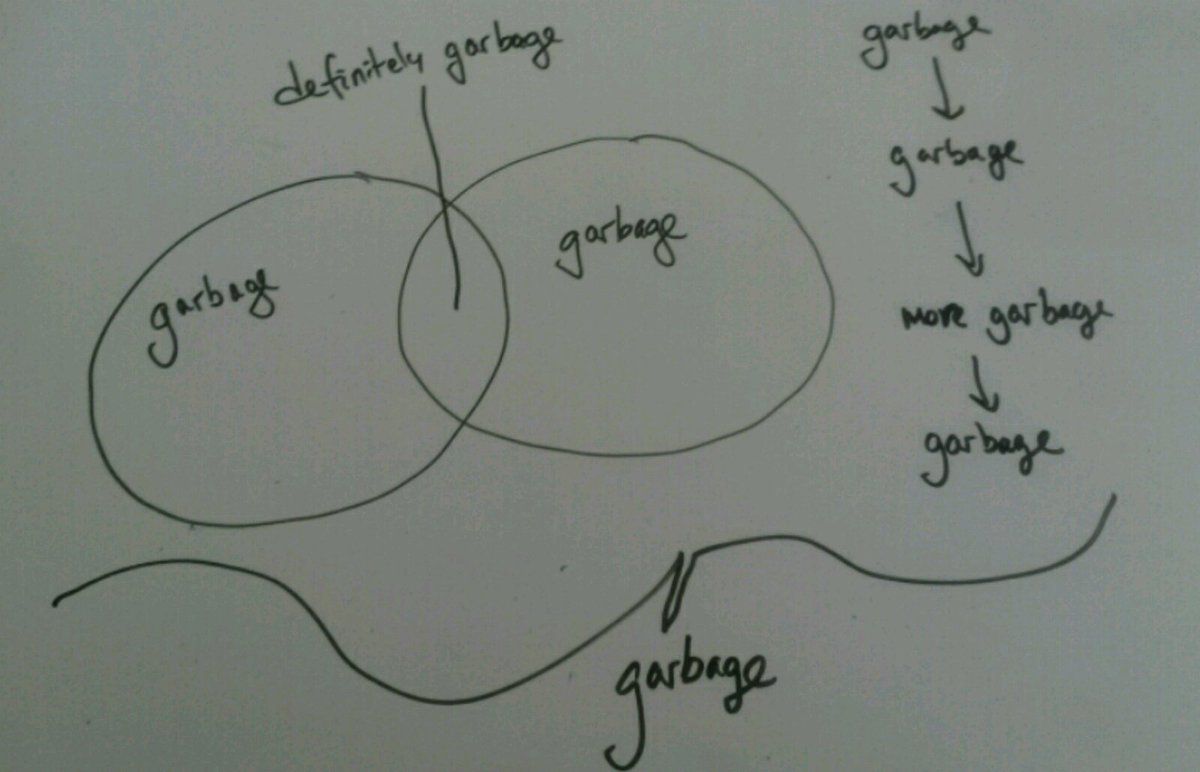 definitely garbage
garbage
garbage
garbage
garbage
more garbage
garbage
garbage